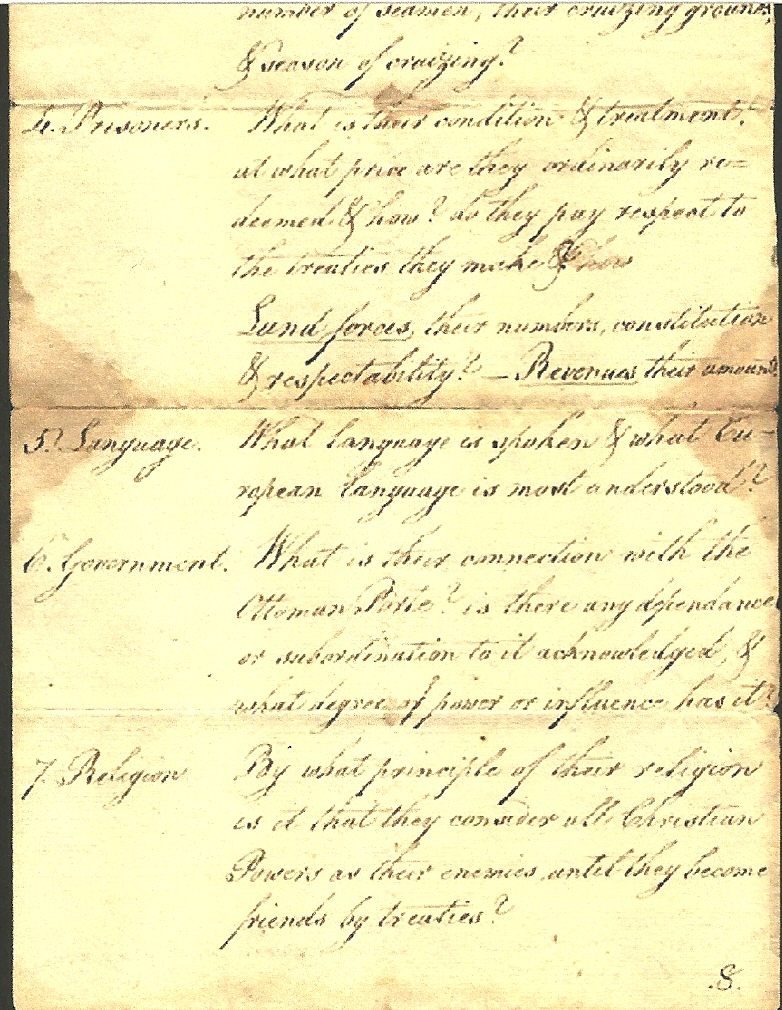 number of seamen, their cruizing grounds,
& season of cruizing?
4. Prisoners. What is their condition & treatment,
at what price are they ordinarily re=
deemed & how? do they pay respect to
the treaties they make &
Land forces, their numbers, constitution
& respectability? — Revenues their amount.
5. Language. What language is spoken & what Eu-
ropean language is most understood?
6. Government. What is their connection with the
Ottoman Porte? is there any dependance
or subordination to it acknowledged, &
what degree of power or influence has it?
7. Religion By what principle of their religion
is it that they consider all Christian
Powers as their enemies, until they become
friends by treaties?
8.